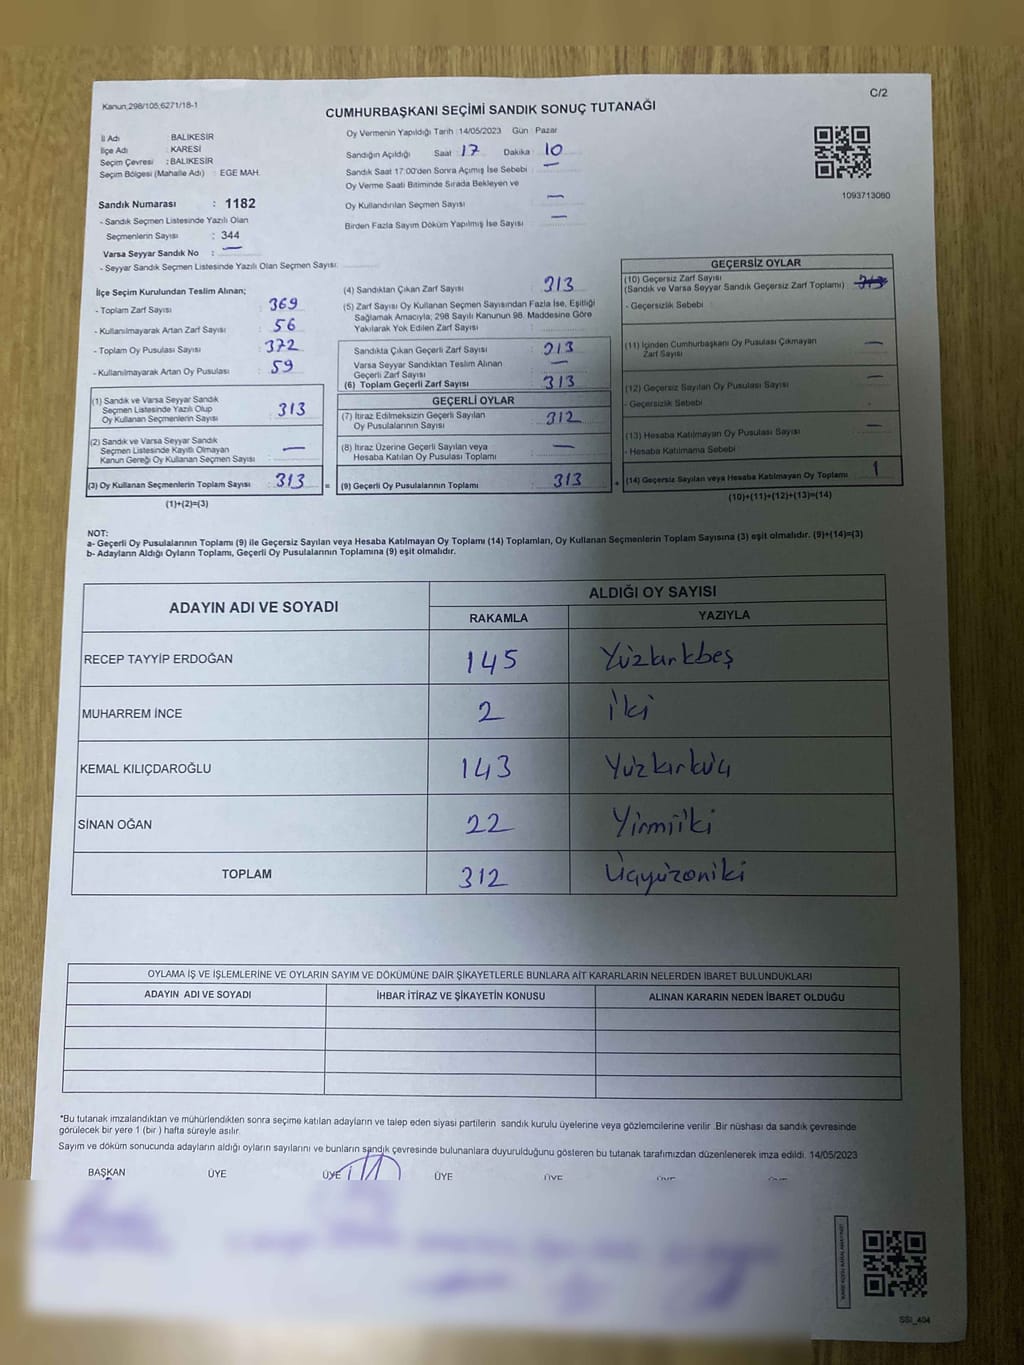 Kanun;298/105;6271/18-1
C/2
CUMHURBAŞKANI SEÇİMİ SANDIK SONUÇ TUTANAĞI
İl Adı : BALIKESİR
İlçe Adı : KARESİ
Seçim Çevresi : BALIKESİR
Seçim Bölgesi (Mahalle Adı) : EGE MAH.
Sandık Numarası : 1182
- Sandık Seçmen Listesinde Yazılı Olan
Seçmenlerin Sayısı : 344
Varsa Seyyar Sandık No : —
- Seyyar Sandık Seçmen Listesinde Yazılı Olan Seçmen Sayısı:
Oy Vermenin Yapıldığı Tarih :14/05/2023 Gün : Pazar
Sandığın Açıldığı Saat : 17 Dakika : 10
Sandık Saat 17:00'den Sonra Açımış İse Sebebi : —
Oy Verme Saati Bitiminde Sırada Bekleyen ve
Oy Kullandırılan Seçmen Sayısı : —
Birden Fazla Sayım Döküm Yapılmış İse Sayısı : —
1093713080
İlçe Seçim Kurulundan Teslim Alınan;
- Toplam Zarf Sayısı : 369
- Kullanılmayarak Artan Zarf Sayısı : 56
- Toplam Oy Pusulası Sayısı : 372
- Kullanılmayarak Artan Oy Pusulası : 59
(1) Sandık ve Varsa Seyyar Sandık
Seçmen Listesinde Yazılı Olup
Oy Kullanan Seçmenlerin Sayısı : 313
(2) Sandık ve Varsa Seyyar Sandık
Seçmen Listesinde Kayıtlı Olmayan
Kanun Gereği Oy Kullanan Seçmen Sayısı : —
(3) Oy Kullanan Seçmenlerin Toplam Sayısı : 313
(1)+(2)=(3)
(4) Sandıktan Çıkan Zarf Sayısı : 313
(5) Zarf Sayısı Oy Kullanan Seçmen Sayısından Fazla İse, Eşitliği
Sağlamak Amacıyla; 298 Sayılı Kanunun 98. Maddesine Göre
Yakılarak Yok Edilen Zarf Sayısı :
Sandıkta Çıkan Geçerli Zarf Sayısı : 313
Varsa Seyyar Sandıktan Teslim Alınan
Geçerli Zarf Sayısı : —
(6) Toplam Geçerli Zarf Sayısı : 313
GEÇERLİ OYLAR
(7) İtiraz Edilmeksizin Geçerli Sayılan
Oy Pusulalarının Sayısı : 312
(8) İtiraz Üzerine Geçerli Sayılan veya
Hesaba Katılan Oy Pusulası Toplamı : —
= (9) Geçerli Oy Pusulalarının Toplamı : 313 +
GEÇERSİZ OYLAR
(10) Geçersiz Zarf Sayısı
(Sandık ve Varsa Seyyar Sandık Geçersiz Zarf Toplamı) : 313
- Geçersizlik Sebebi :
(11) İçinden Cumhurbaşkanı Oy Pusulası Çıkmayan
Zarf Sayısı : —
(12) Geçersiz Sayılan Oy Pusulası Sayısı : —
- Geçersizlik Sebebi :
(13) Hesaba Katılmayan Oy Pusulası Sayısı : —
- Hesaba Katılmama Sebebi :
(14) Geçersiz Sayılan veya Hesaba Katılmayan Oy Toplamı : 1
(10)+(11)+(12)+(13)=(14)
NOT:
a- Geçerli Oy Pusulalarının Toplamı (9) ile Geçersiz Sayılan veya Hesaba Katılmayan Oy Toplamı (14) Toplamları, Oy Kullanan Seçmenlerin Toplam Sayısına (3) eşit olmalıdır. (9)+(14)=(3)
b- Adayların Aldığı Oyların Toplamı, Geçerli Oy Pusulalarının Toplamına (9) eşit olmalıdır.
ADAYIN ADI VE SOYADI
ALDIĞI OY SAYISI
RAKAMLA YAZIYLA
RECEP TAYYİP ERDOĞAN 145 Yüzkırkbeş
MUHARREM İNCE 2 iki
KEMAL KILIÇDAROĞLU 143 Yüzkırküç
SİNAN OĞAN 22 Yirmiiki
TOPLAM 312 Üçyüzoniki
OYLAMA İŞ VE İŞLEMLERİNE VE OYLARIN SAYIM VE DÖKÜMÜNE DAİR ŞİKAYETLERLE BUNLARA AİT KARARLARIN NELERDEN İBARET BULUNDUKLARI
ADAYIN ADI VE SOYADI İHBAR İTİRAZ VE ŞİKAYETİN KONUSU ALINAN KARARIN NEDEN İBARET OLDUĞU
*Bu tutanak imzalandıktan ve mühürlendikten sonra seçime katılan adayların ve talep eden siyasi partilerin sandık kurulu üyelerine veya gözlemcilerine verilir .Bir nüshası da sandık çevresinde
görülecek bir yere 1 (bir ) hafta süreyle asılır.
Sayım ve döküm sonucunda adayların aldığı oyların sayılarını ve bunların sandık çevresinde bulunanlara duyurulduğunu gösteren bu tutanak tarafımızdan düzenlenerek imza edildi. 14/05/2023
BAŞKAN ÜYE ÜYE ÜYE ÜYE
SSI_404